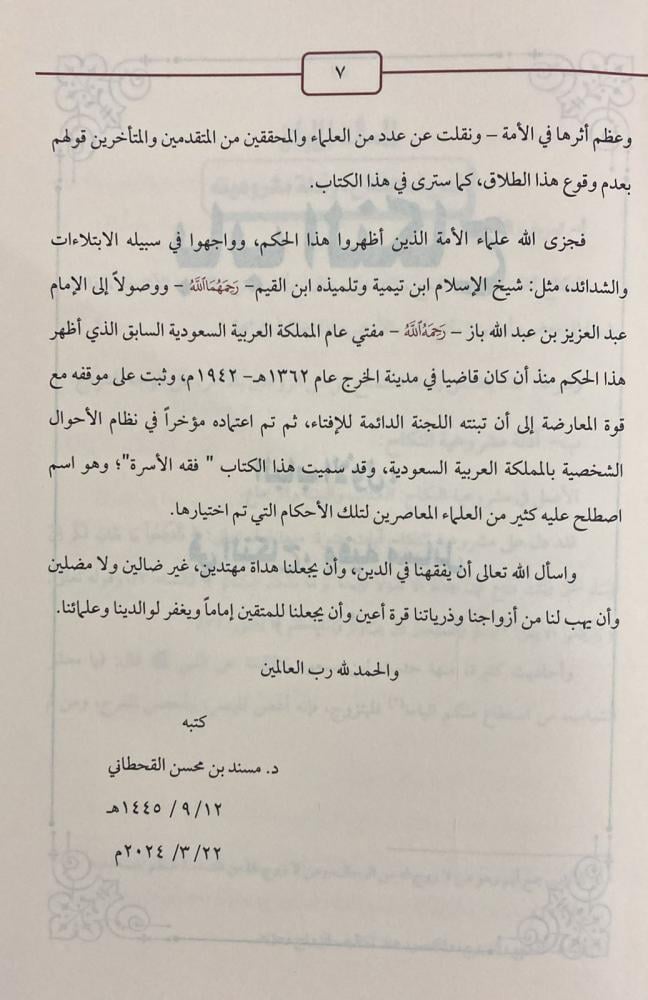 ٧
وعظم أثرها في الأمة – ونقلت عن عدد من العلماء والمحققين من المتقدمين والمتأخرين قولهم
بعدم وقوع هذا الطلاق، كما سترى في هذا الكتاب.
فجزى الله علماء الأمة الذين أظهروا هذا الحكم، وواجهوا في سبيله الابتلاءات
والشدائد، مثل: شيخ الإسلام ابن تيمية وتلميذه ابن القيم– رَحِمَهُمَااللَّهُ – ووصولاً إلى الإمام
عبد العزيز بن عبد الله باز – رَحِمَهُاللَّهُ – مفتي عام المملكة العربية السعودية السابق الذي أظهر
هذا الحكم منذ أن كان قاضيا في مدينة الخرج عام ١٣٦٢هـ– ١٩٤٢م، وثبت على موقفه مع
قوة المعارضة إلى أن تبنته اللجنة الدائمة للإفتاء، ثم تم اعتماده مؤخراً في نظام الأحوال
الشخصية بالمملكة العربية السعودية، وقد سميت هذا الكتاب " فقه الأسرة"؛ وهو اسم
اصطلح عليه كثير من العلماء المعاصرين لتلك الأحكام التي تم اختيارها.
واسأل الله تعالى أن يفقهنا في الدين، وأن يجعلنا هداة مهتدين، غير ضالين ولا مضلين
وأن يهب لنا من أزواجنا وذرياتنا قرة أعين وأن يجعلنا للمتقين إماماً ويغفر لوالدينا وعلمائنا.
والحمد لله رب العالمين
كتبه
د. مسند بن محسن القحطاني
١٢/ ٩/ ١٤٤٥هـ
٢٢/ ٣/ ٢٠٢٤م